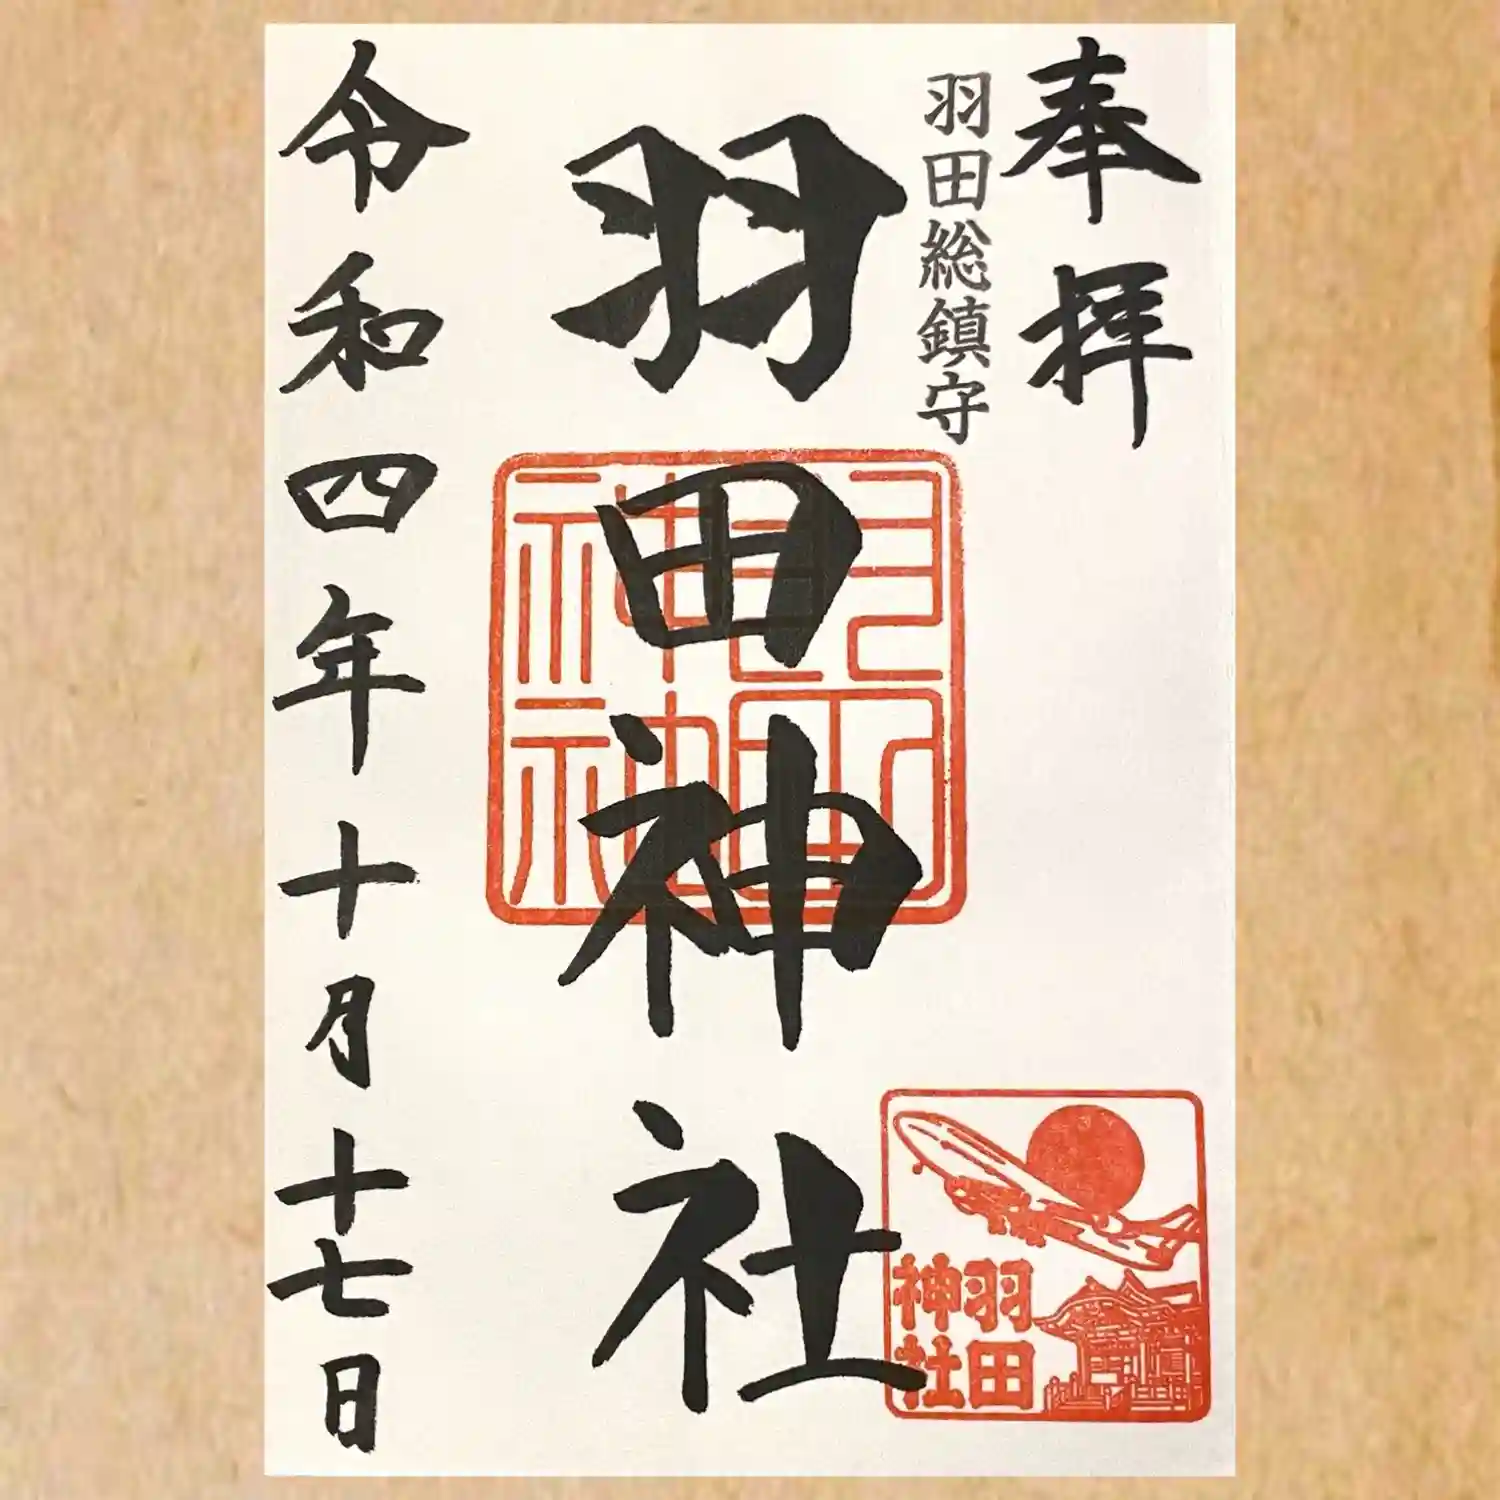 奉拝
羽田総鎮守
羽田神社
羽田神社
羽田
神社
令和四年十月十七日